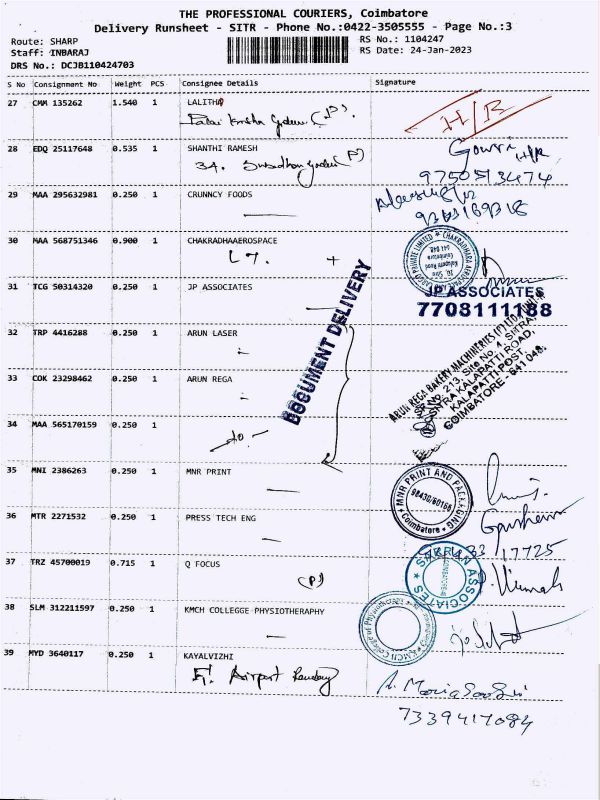 THE PROFESSIONAL COURIERS, Coimbatore
Delivery Runsheet - SITR - Phone No.:0422-3505555 - Page No.:3
Route: SHARP
Staff: INBARAJ
DRS No.: DCJB110424703
RS No.: 1104247
RS Date: 24-Jan-2023
S No Consignment No Weight PCS Consignee Details Signature
27 CMM 135262 1.540 1 LALITHA
(P).
H/R
28 EDQ 25117648 0.535 1 SHANTHI RAMESH
34.
(P)
Gowri H/R
9750513474
29 MAA 295632981 0.250 1 CRUNNCY FOODS
30 MAA 568751346 0.900 1 CHAKRADHAAEROSPACE
31 TCG 50314320 0.250 1 JP ASSOCIATES
JP ASSOCIATES
7708111188
DOCUMENT DELIVERY
32 TRP 4416288 0.250 1 ARUN LASER
33 COK 23298462 0.250 1 ARUN REGA
ARUN REGA BAKERY MACHINERIES (P) LTD, UNIT-II
SF.No. 213, Site No 4, SITRA,
KALAPATTI ROAD,
KALAPATTI POST,
COIMBATORE - 641 048.
34 MAA 565170159 0.250 1
35 MNI 2386263 0.250 1 MNR PRINT
MNR PRINT AND PACKAGING
98430/60166
Coimbatore
36 MTR 2271532 0.250 1 PRESS TECH ENG
17725
37 TRZ 45700019 0.715 1 Q FOCUS
(P)
ASSOCIATES
38 SLM 312211597 0.250 1 KMCH COLLEGGE PHYSIOTHERAPHY
KMCH College of Physiotherapy
39 MYD 3640117 0.250 1 KAYALVIZHI
Airport
7339417084